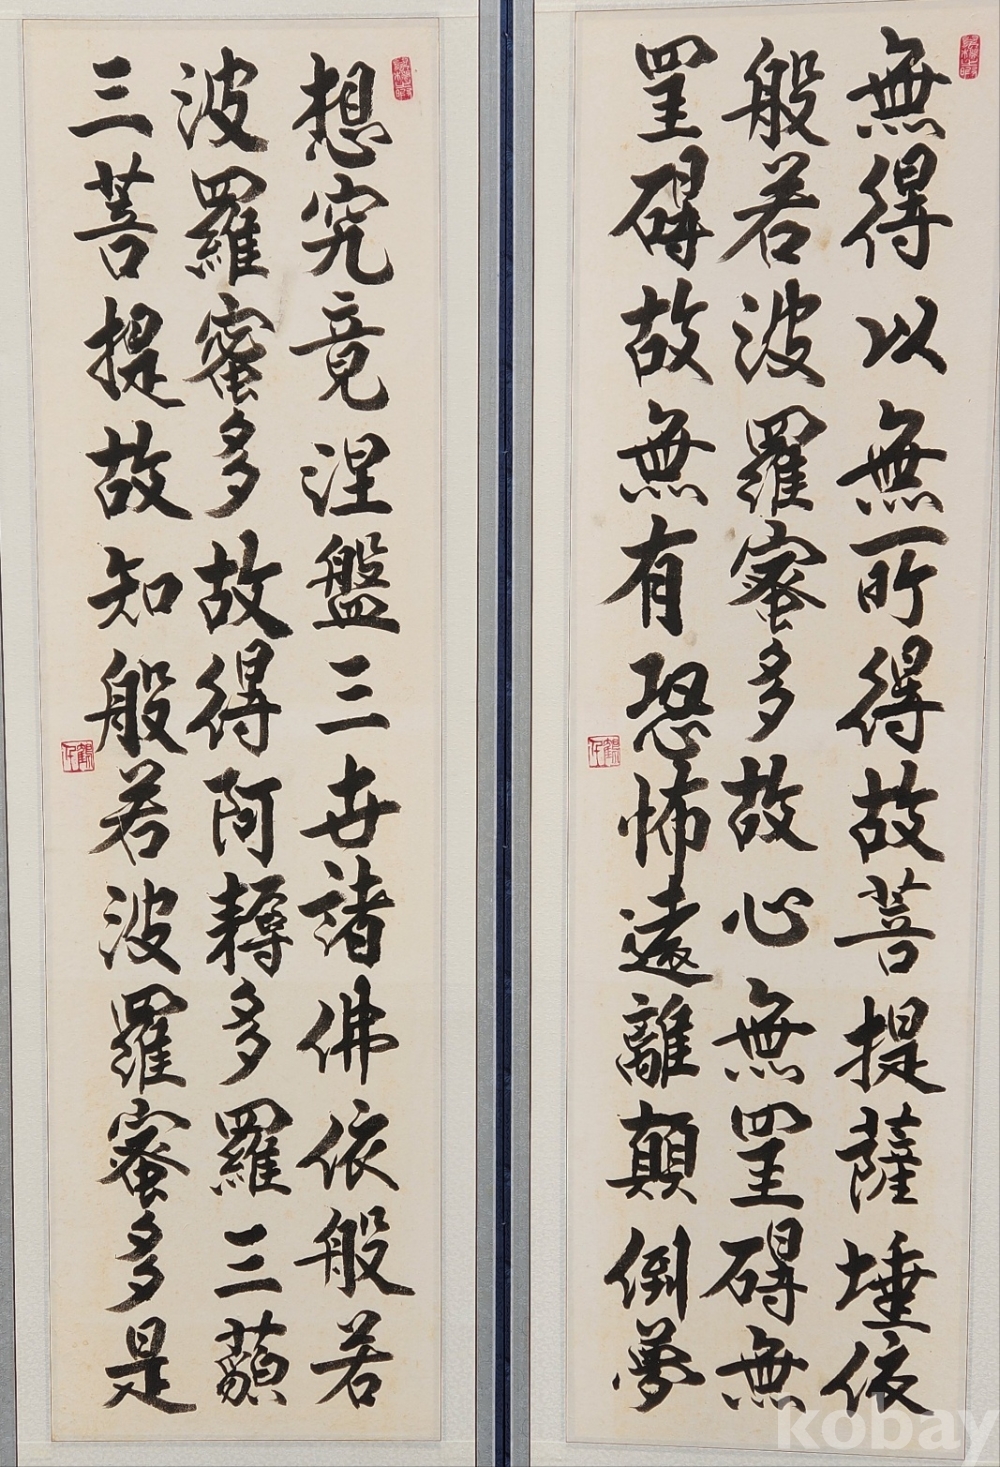 無得以無所得故菩提薩埵依
般若波羅蜜多故心無罣碍無
罣碍故無有恐怖遠離顛倒夢
想究竟涅盤三世諸佛依般若
波羅蜜多故得阿耨多羅三藐
三菩提故知般若波羅蜜多是
kobay